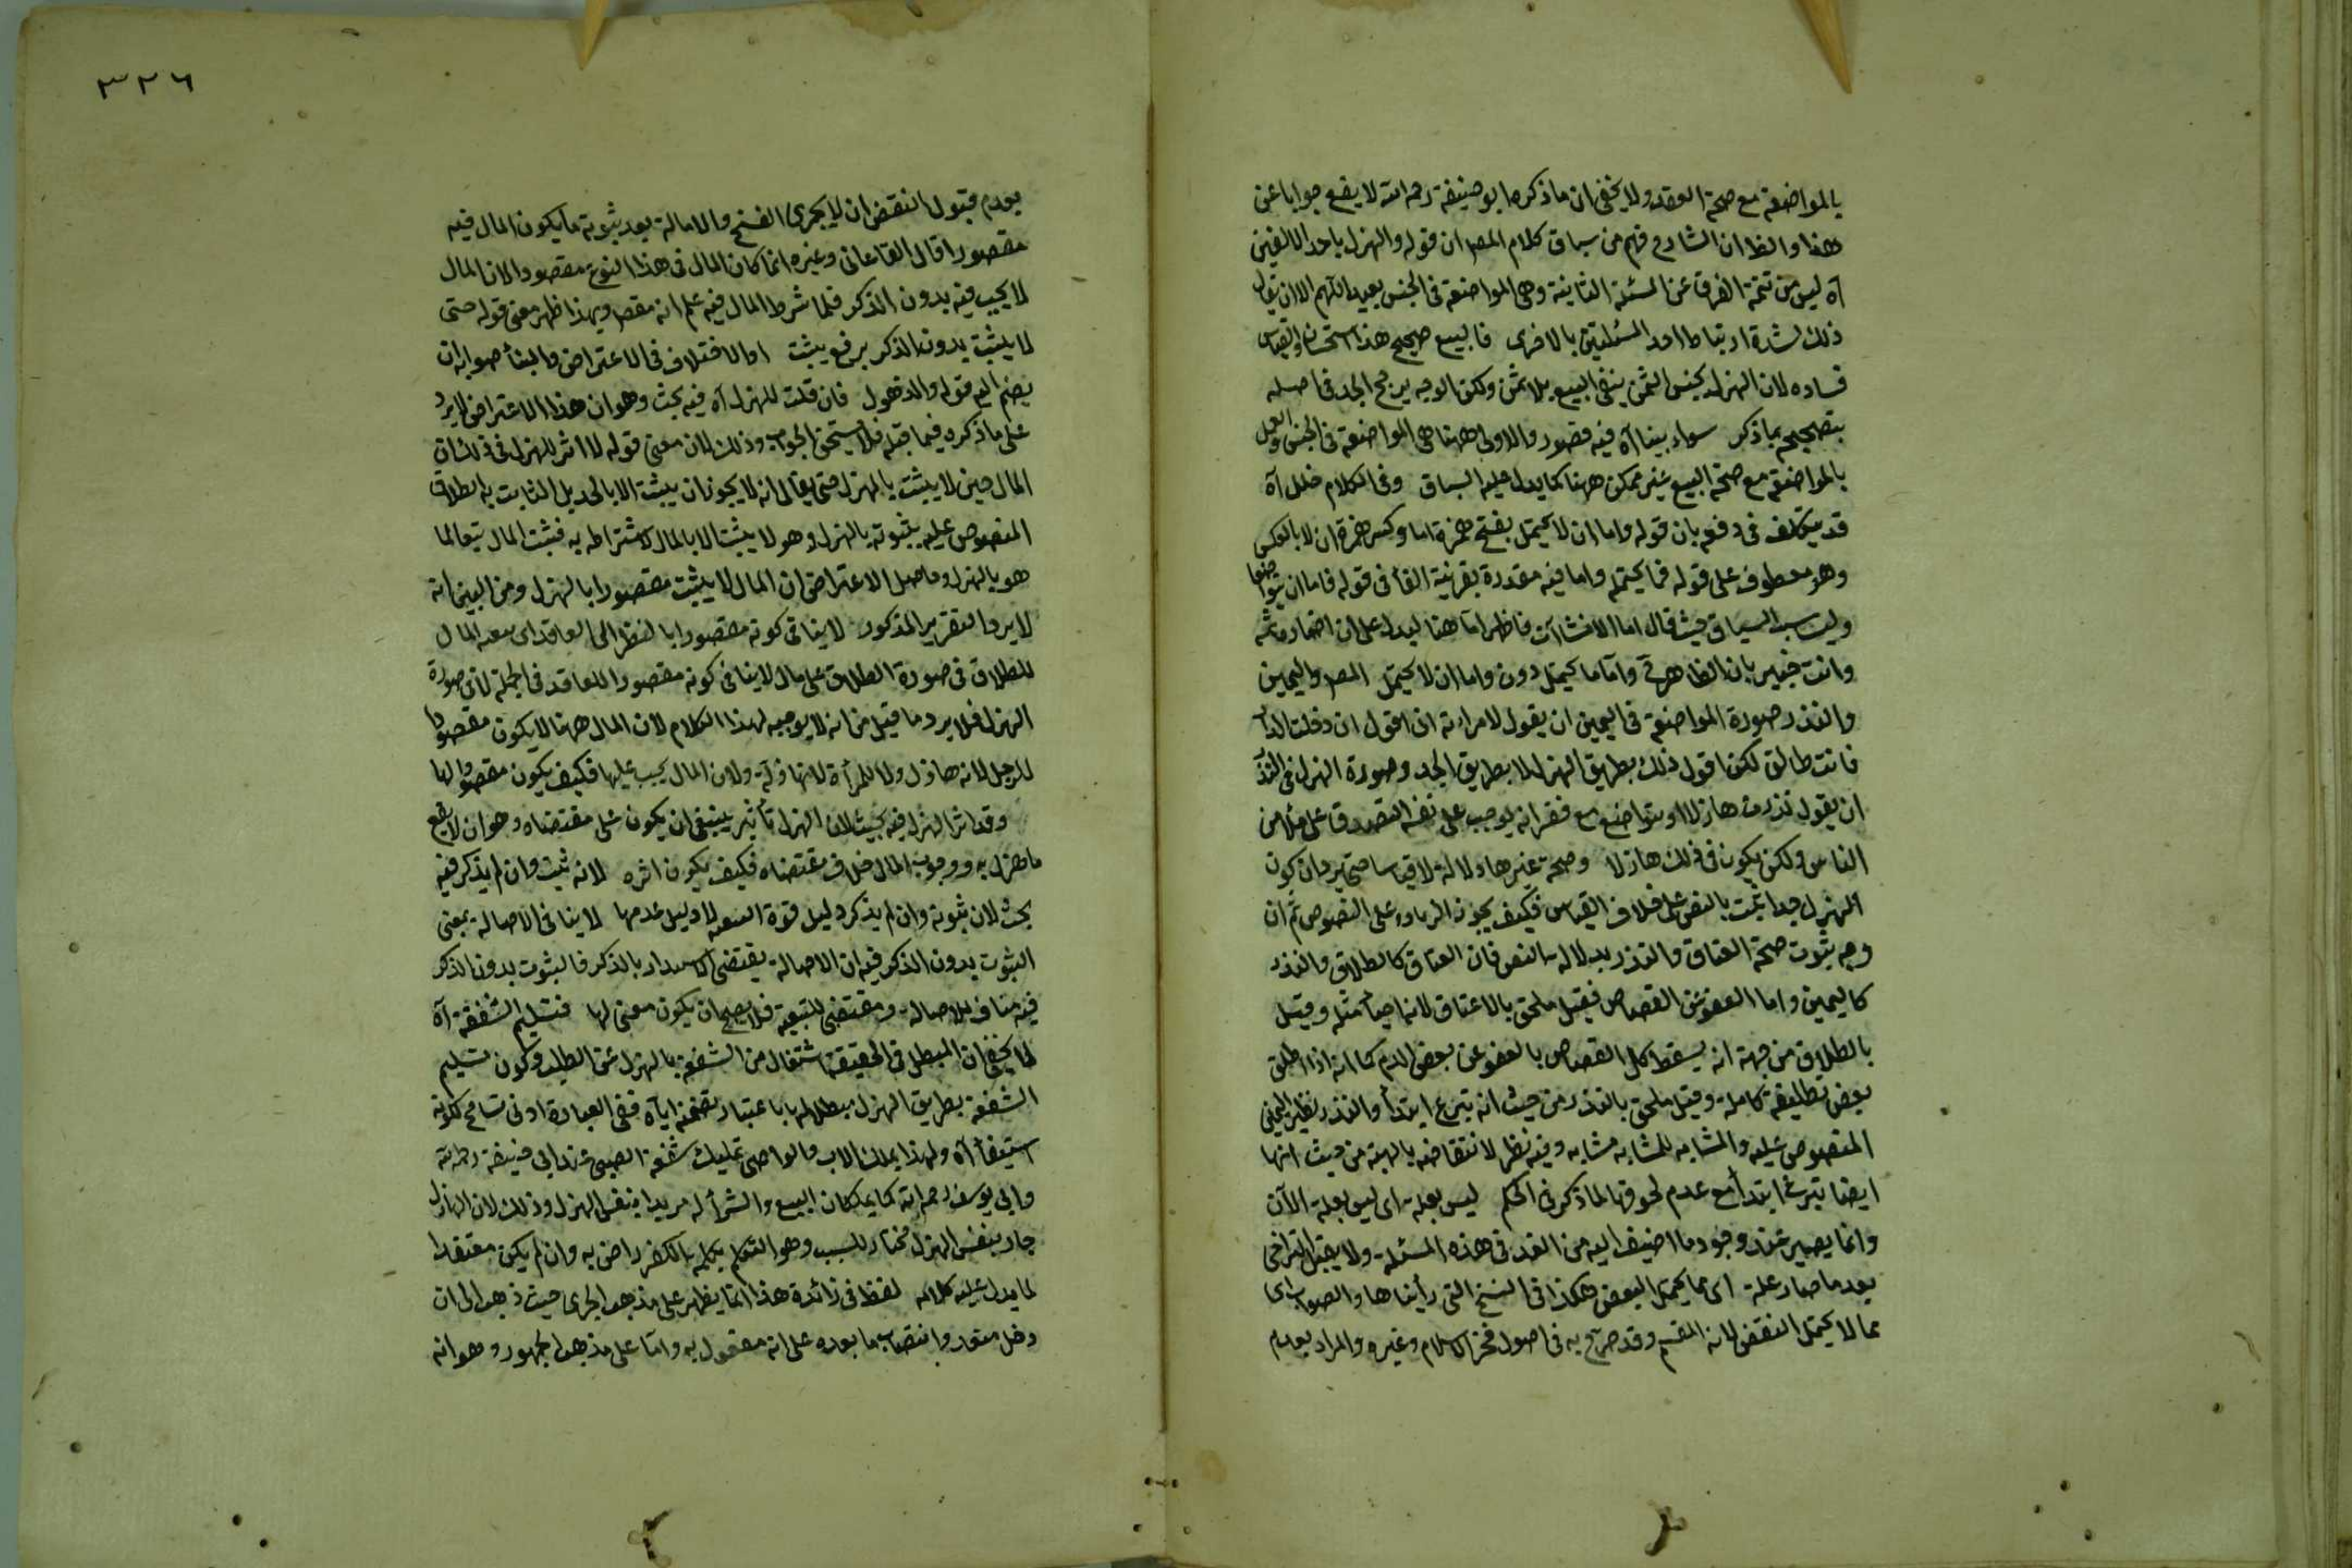 بالمواضعة مع صحة العقد ولا يخفى ان ما ذكره ابو حنيفة رحمه الله لا يقع جوابا عن
هذا والظ ان الشارح فهم من سياق كلام المص ان قوله والهزل باحد الالفين
آه ليس من تتمة الفرق عن المسئلة الثانية وهى المواضعة فى الجنس بعيد اللهم الا ان يقال
ذلك لشدة ارتباط احد المسئلتين بالاخرى فالبيع صحيح هذا استحسان والقياس
فساده لان الهزل بجنس الثمن ينفى البيع بلا ثمن ولكن الوجه يرجح الجد فى اصله
بتصحيحه بما ذكر سواء بينا آه فيه قصور والاولى ههنا هى المواضعة فى الجنس والعمل
بالمواضعة مع صحة البيع غير ممكن ههنا كما يدل عليه السياق وفى الكلام خلل آه
قد يتكلف فى دفعه بان قوله واما ان لا يحتمل بفتح همزة اما وكسر همزة ان لا بالعكس
وهو معطوف على قوله فما يحتمله واما فيه مقدرة بقرينة الفأ فى قوله فاما ان يتواضعا
وليناسب السياق حيث قال اما الانشاآت فاظهر اما هنا ليدل على ان اضماره ثمه
وانت خبير بان الظاهر واما ما يحتمل دون واما ان لا يحتمل المص واليمين
والنذر صورة المواضعة فى اليمين ان يقول لامرأته ان اقول ان دخلت الدار
فانت طالق لكن اقول ذلك بطريق الهزل لا بطريق الجد وصورة الهزل فى النذر
ان يقول نذرت هازلا او يتواضع مع فقير انه يوجب على نفسه التصدق على ملأ من
الناس ولكن يكون فى ذلك هازلا وصحة غيرها دلالة لا قياسا حتى يرد ان كون
الهزل جدا ثبت بالنص على خلاف القياس فكيف يجوز الزيادة على النصوص ثم ان
وجه ثبوت صحة العتاق والنذر بدلالة النص فان العتاق كالطلاق والنذر
كاليمين واما العفو عن القصاص فقيل ملحق بالاعتاق لانه احيأ مثله وقيل
بالطلاق من جهة انه يسقط كل القصاص بالعفو عن بعض الدم كما انه اذا طلق
بعض تطليقة كاملة وقيل ملحق بالنذر من حيث انه تبرع ابتدأ والنذر نظير اليمين
المنصوص عليه والمشابه للمشابه مشابه وفيه نظر لانتقاضه بالهبة من حيث انها
ايضا تبرع ابتدأ مع عدم لحوقها لما ذكر فى الحكم ليس بعلة اى ليس بعلة الآن
وانما يصير عند وجود ما اضيف اليه من الغد فى هذه المسئلة ولا يقبل التراخى
بعد ما صار علة اى مما يحتمل البعض هكذا فى النسخ التى رأيناها والصواب اى
مما لا يحتمل النقض لانه المقسم وقد صرح به فى اصول فخر الاسلام وغيره والمراد بعدم
٣٢٦
بعدم قبول النقض ان لا يجرى الفسخ والاقالة بعد ثبوته ما يكون المال فيه
مقصودا قال القاءانى وغيره انما كان المال فى هذا النوع مقصودا لان المال
لا يجب فيه بدون الذكر فلما شرط المال فيه علم انه مقصود وبهذا ظهر معنى قوله حتى
لا يثبت بدون الذكر برفع يثبت او الاختلاف فى الاعتراض والبنأ صوابه ان
يضم اليه قوله والذهول فان قلت للهزل آه فيه بحث وهو ان هذا الاعتراض لا يرد
على ما ذكره فيما قبله فلا يستحق الجواب وذلك لان معنى قوله لا اثر للهزل فى ذلك ان
المال حين لا يثبت بالهزل حتى يقال انه لا يجوز ان يثبت الا بالحديل الثابت به الطلاق
المنصوص عليه بثبوته بالهزل وهو لا يثبت الا بالمال لاشتراطه به فثبت المال تبعا لما
هو بالهزل وحاصل الاعتراض ان المال لا يثبت مقصودا بالهزل ومن البين انه
لا يرد التقرير المذكور لا ينافى كونه مقصودا بالنظر الى العاقد اى تبعية المال
للطلاق فى صورة الطلاق على مال لا ينافى كونه مقصودا للعاقد فى الجملة لا فى صورة
الهزل فلا يرد ما قيل من انه لا يوجبه لهذا الكلام لان المال ههنا لا يكون مقصودا
للرجل لانه هازل ولا للمرأة لانها هازلة ولان المال يجب عليها فكيف يكون مقصودا لها
وقد اثر الهزل فيه بحيث لان الهزل تأثير ينبغى ان يكون على مقتضاه وهو ان لا يقع
ما هزل به ووجوب المال خلاف مقتضاه فكيف يكون اثره لانه ثبت وان لم يذكر فيه
بحث لان ثبوته وان لم يذكر دليل قوة التبعية لا دليل عدمها لا ينافى الاصالة بمعنى
الثبوت بدون الذكر فيه ان الاصالة يقتضى الاستبداد بالذكر فالثبوت بدون الذكر
فيه مناف للاصالة ومقتضى للتبعية فلا يصح ان يكون معنى لها فتسليم الشفعة آه
لا يخفى ان المبطل فى الحقيقة اشتغال من الشفعة بالهزل عن الطلب وكون تسليم
الشفعة بطريق الهزل مبطلا لها باعتبار تضمنه اياه ففى العبارة ادنى تسامح لكونه
استيفأ آه ولهذا يملك الاب والوصى تمليك شفعة الصبى عند ابى حنيفة رحمه الله
وابى يوسف رحمه الله كما يملكان البيع والشرأ له مريدا بنفس الهزل وذلك لان الهازل
جاد بنفس الهزل مختار للسبب وهو التكلم بكلمة الكفر راض به وان لم يكن معتقدا
لما يدل عليه كلامه لفظ فى زائدة هذا انما يظهر على مذهب الجرمى حيث ذهب الى ان
دخل متعد وانتصاب ما بعده على انه مفعول به واما على مذهب الجمهور وهو انه